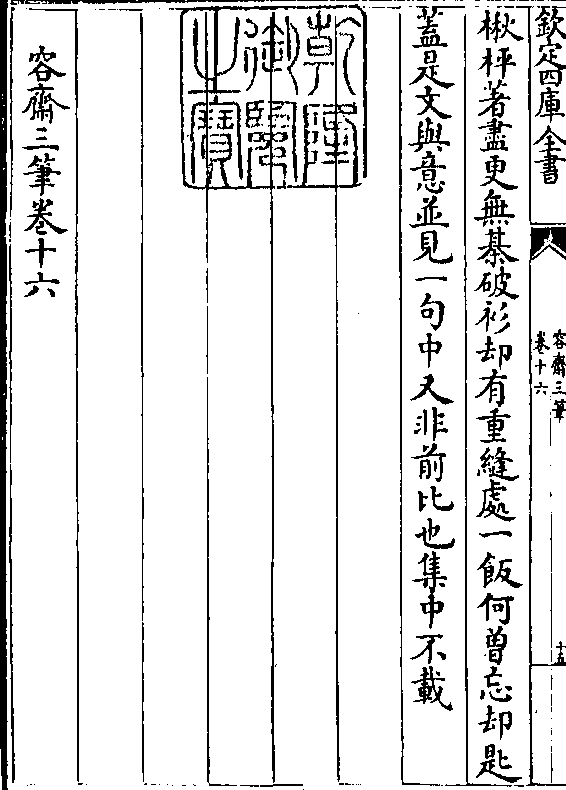 欽定四庫全書
容齋三筆
卷十六
十五
楸枰著盡更無棊破衫却有重縫處一飯何曽忘却匙
蓋是文與意並見一句中又非前比也集中不載
乾隆
御覽
之寶
容齋三筆卷十六